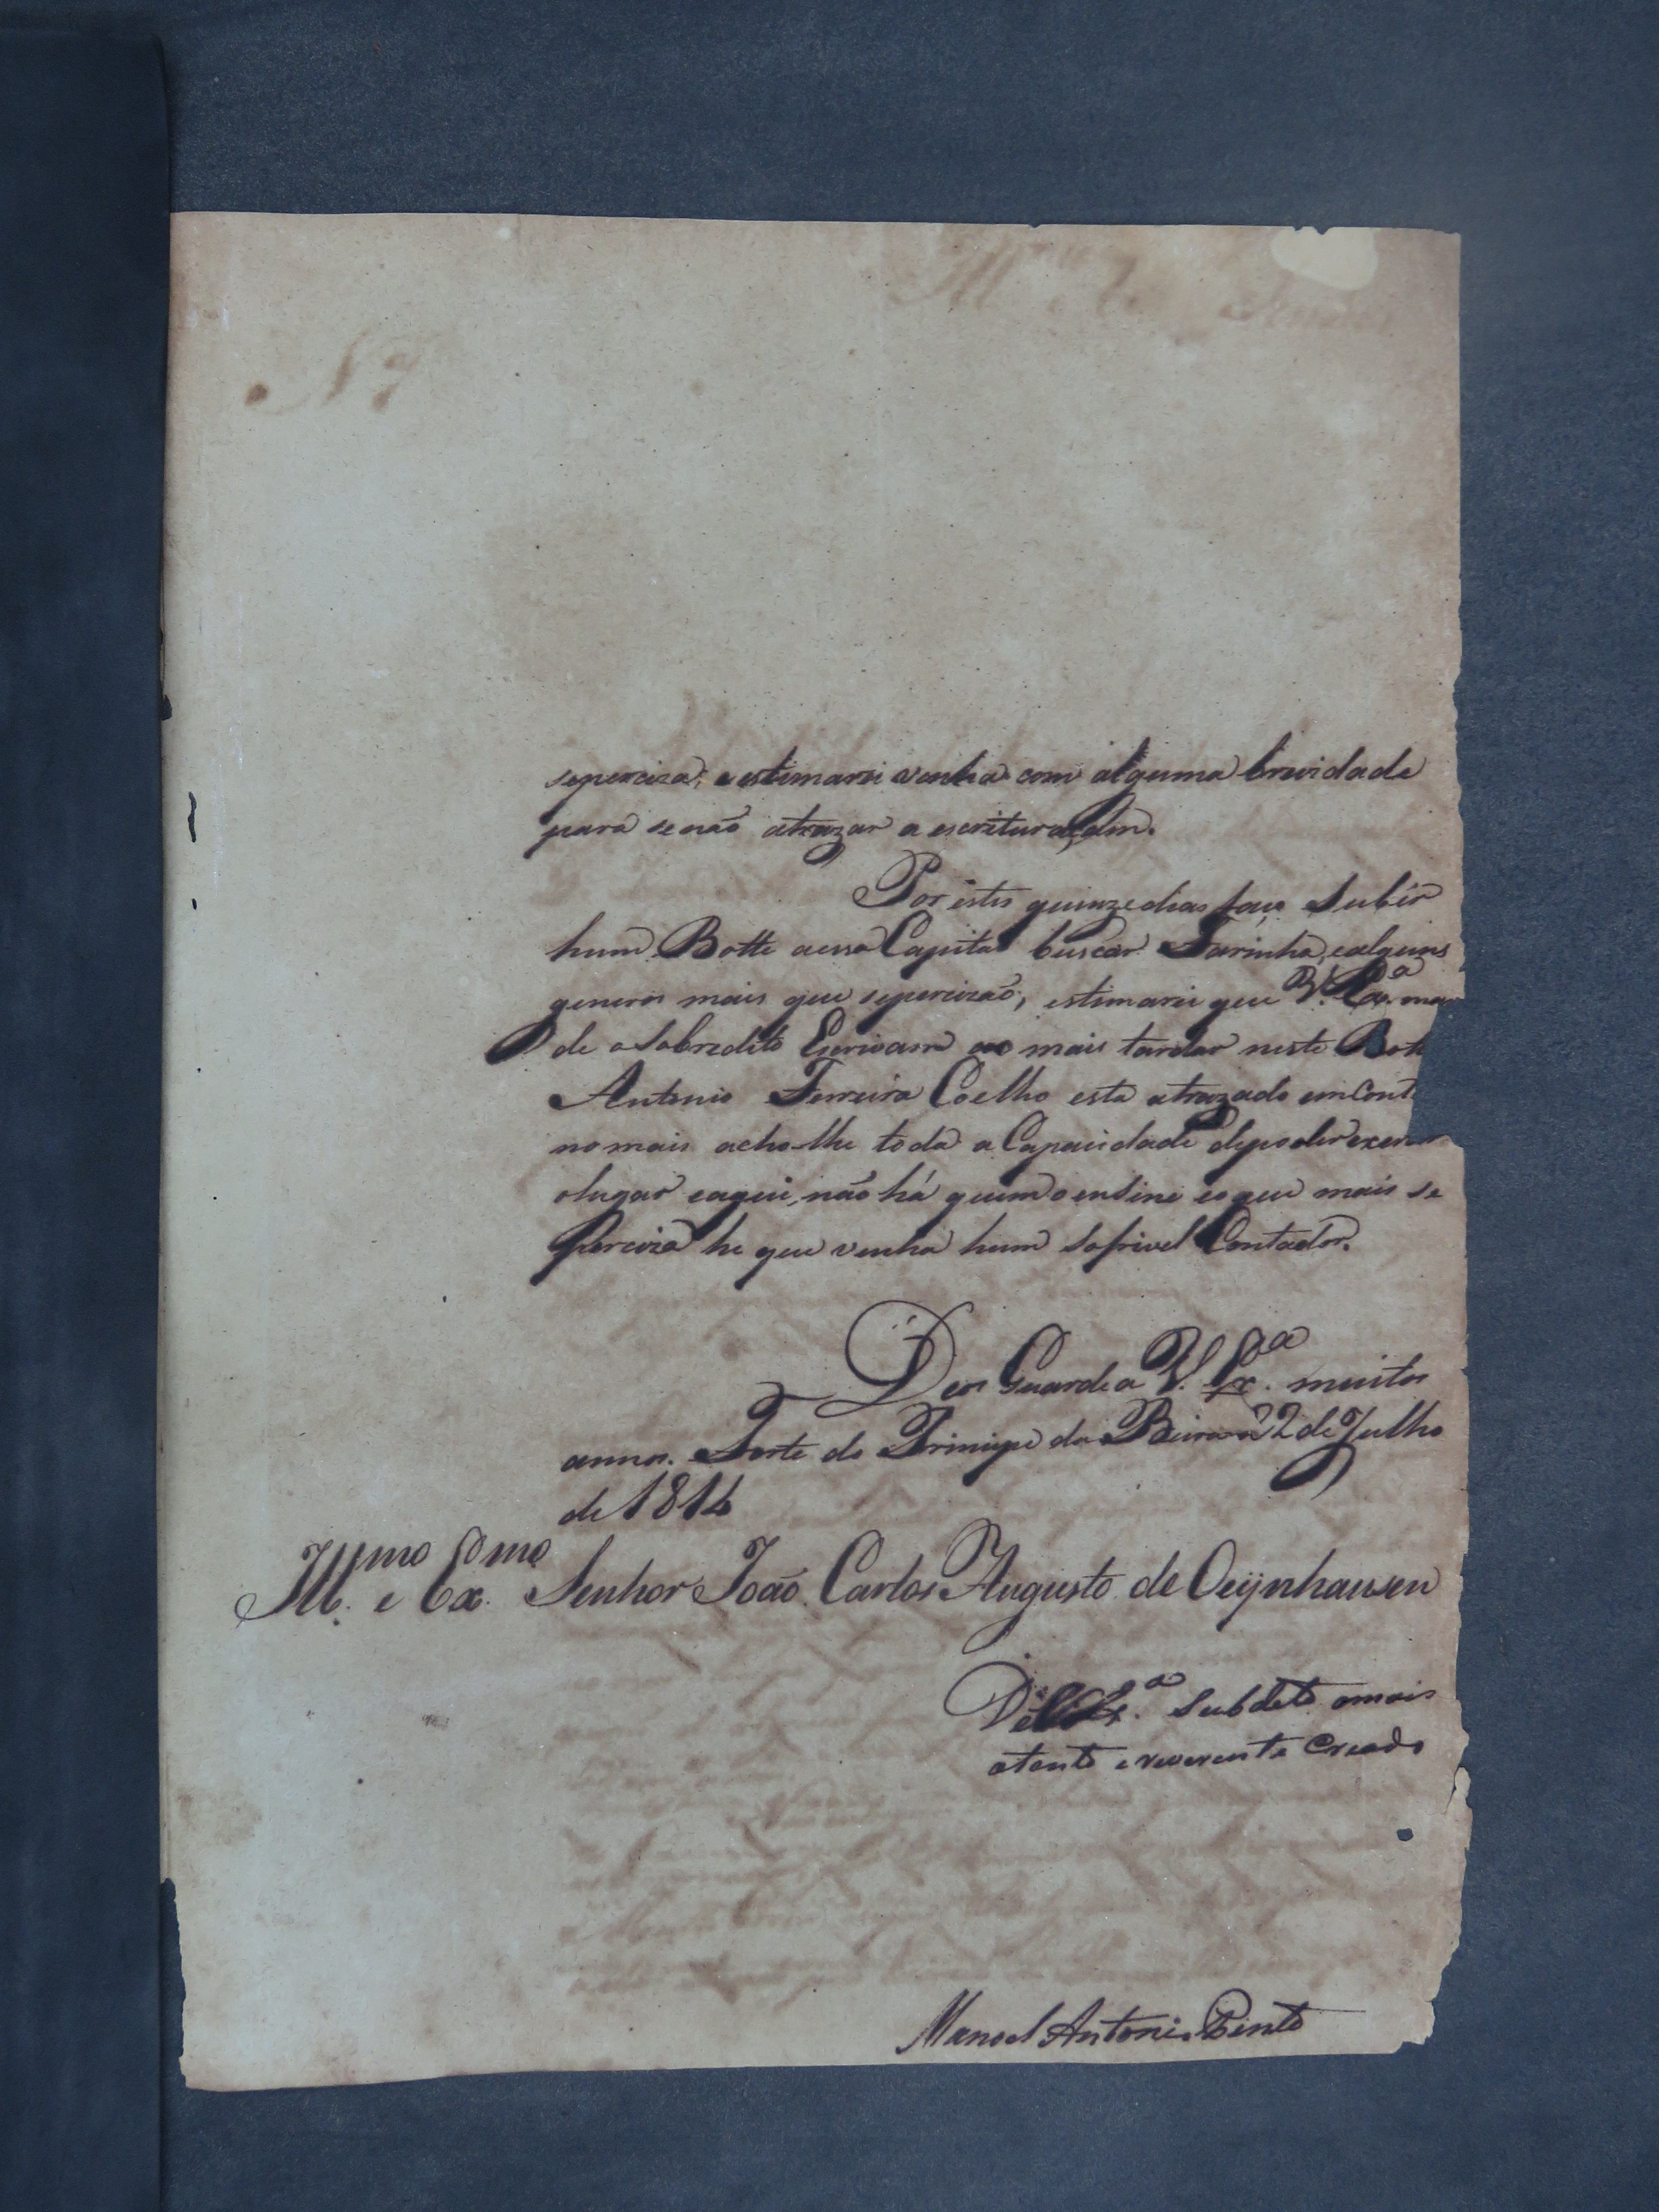 seperciza, e estimarei venha com alguma brevidade
para se não atrazar a escrituraçam.
Por estes quinze dias faço subir
hum Botte a essa Capital buscar Farinha, e alguns
generos mais que se percizão; estimarei que V. Exª. man
de o sobredito Escrivam ao mais tardar neste Bote
Antonio Ferreira Coelho esta atrazado em Cont
no mais acho-lhe toda a Capacidade de poder exercer
o lugar e aqui não há quem o ensine e o que mais se
perciza he que venha hum sofrivel Contador.
Deos Guarde a V. Exª. muitos
annos. Forte do Principe da Beira 22 de Julho
de 1814
Ill.mo e Ex.mo Senhor João Carlos Augusto de Oeÿnhausen
De V. Exª. Subdito o mais
atento e reverente Creado
Manoel Antonio Pinto